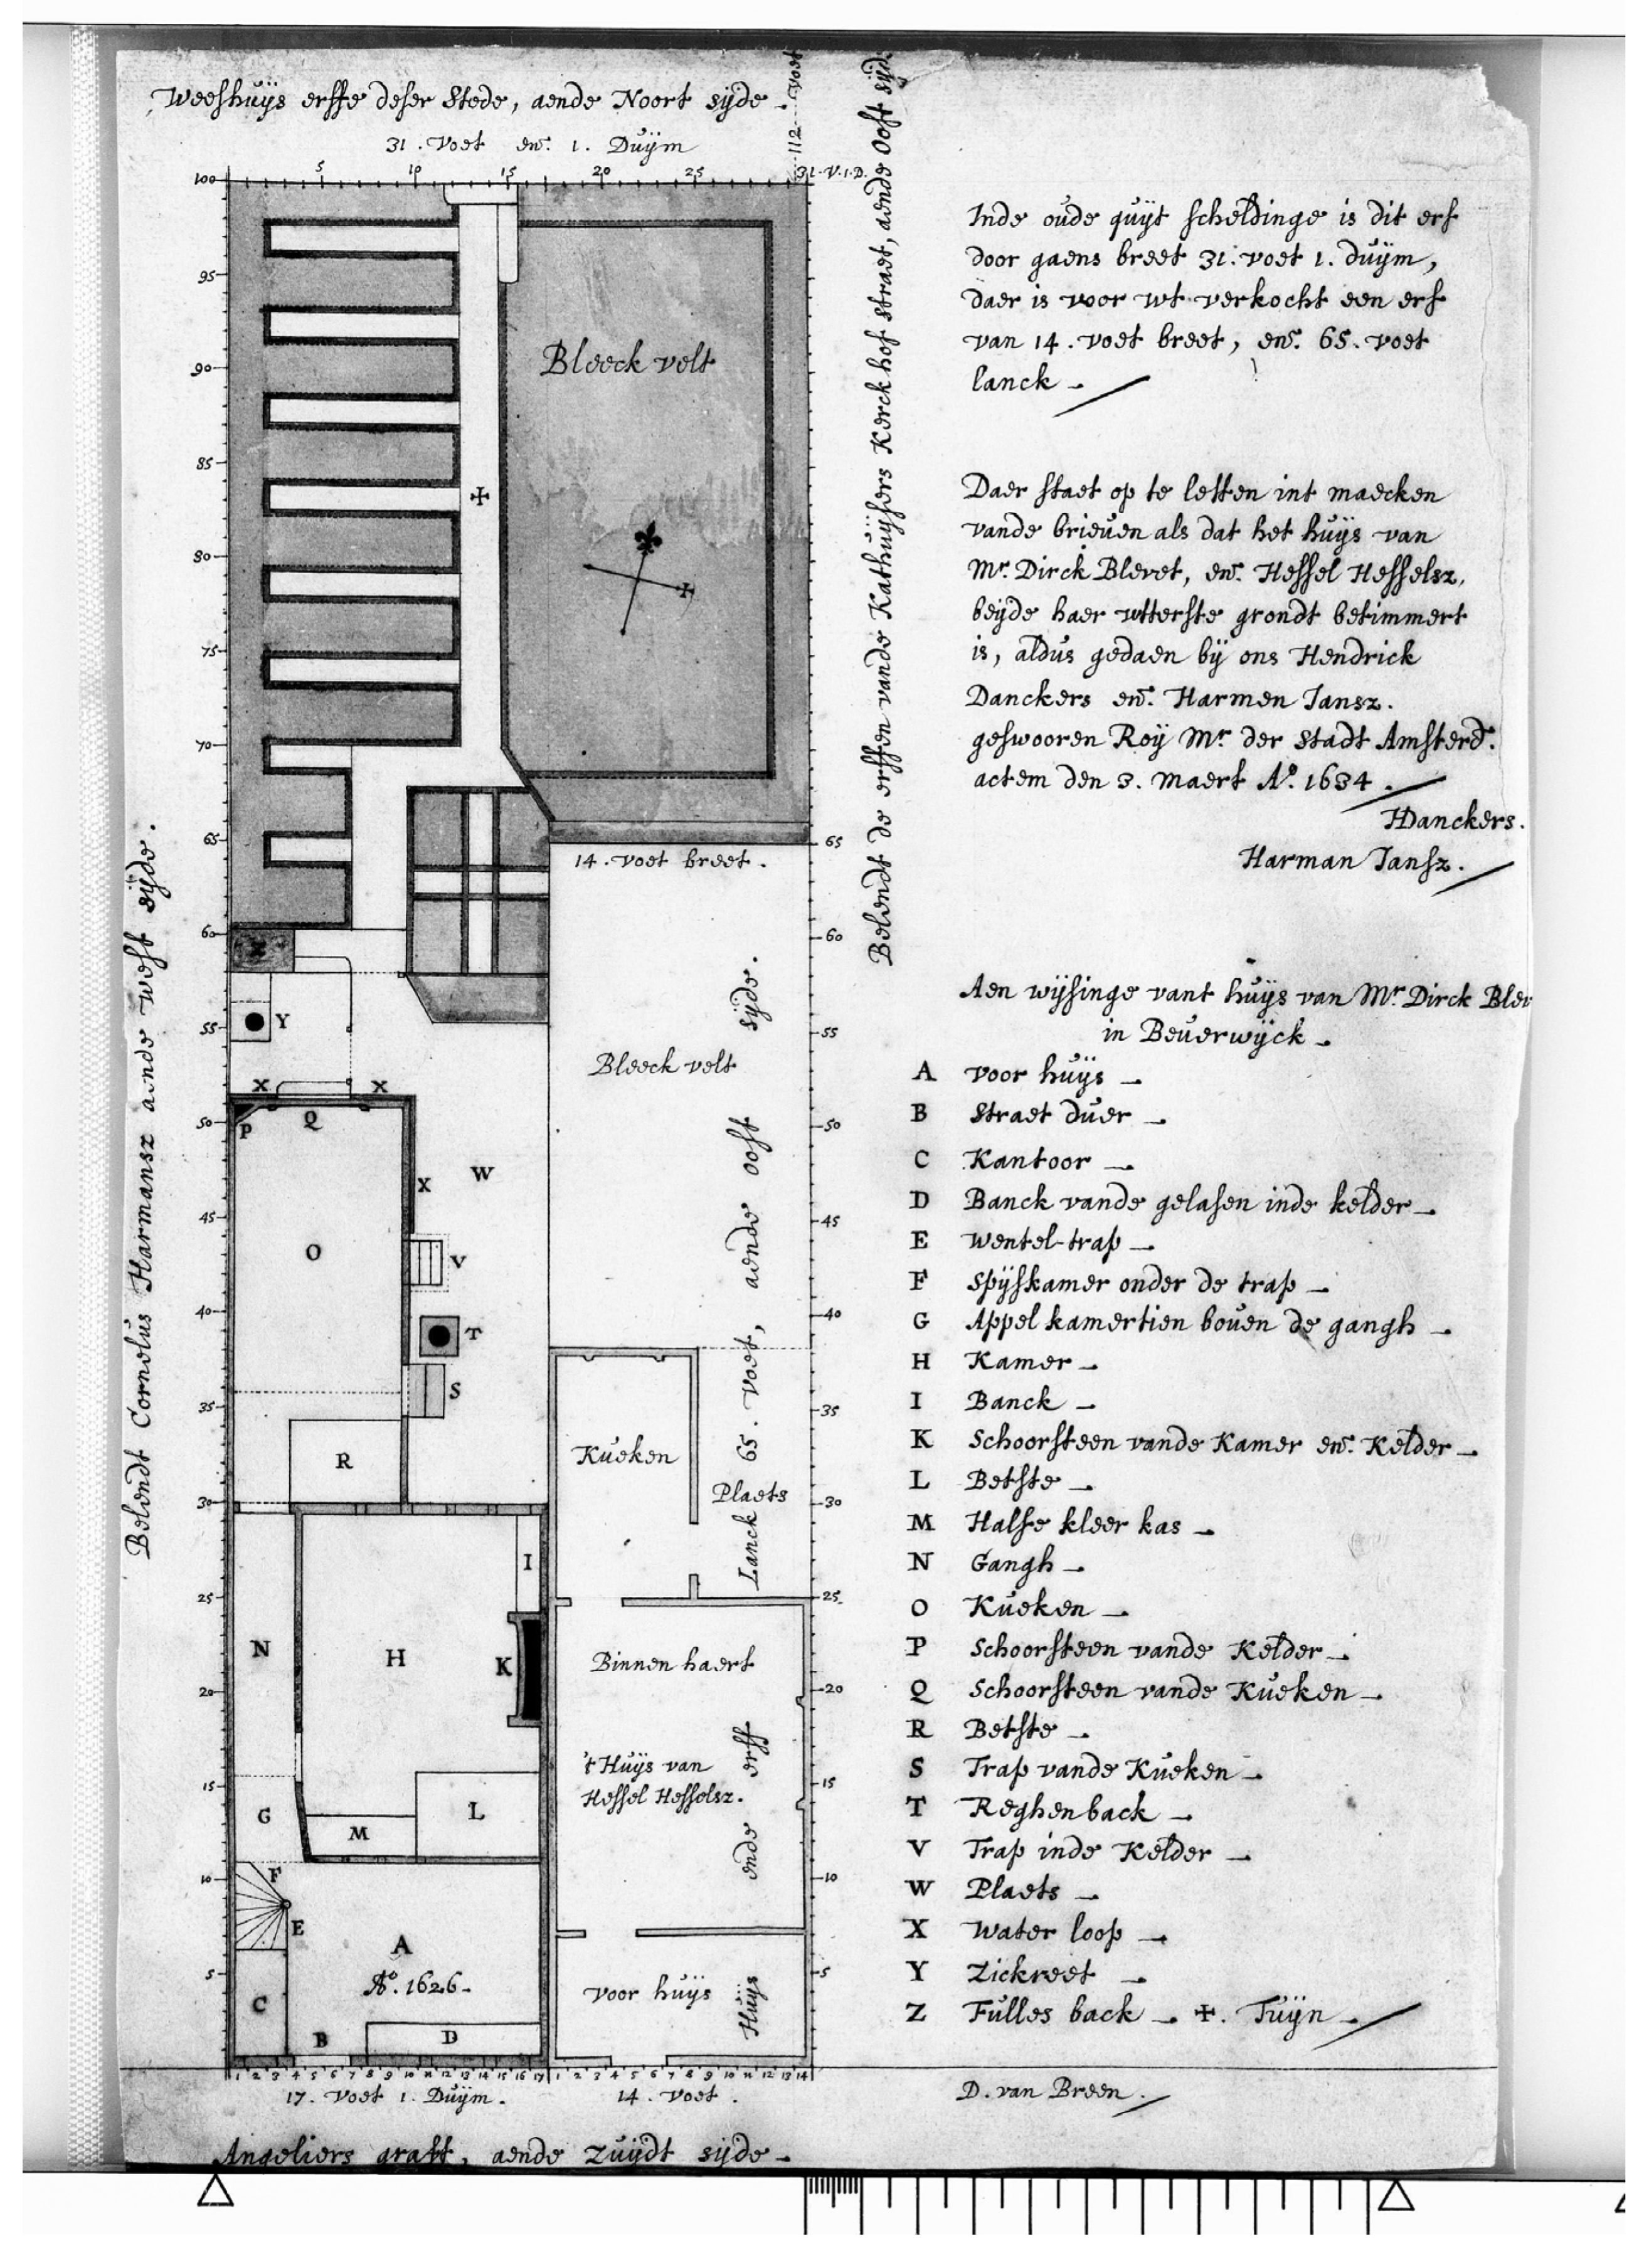 Weeshuijs erffe deser Stede, aende Noort sijde.
31. Voet en. 1. Duijm
112 voet
5 10 15 20 25 31.V.1.D.
100
95
90
85
80
75
70
65
60
55
50
45
40
35
30
25
20
15
10
5
Bleeck velt
65
60
55
50
45
40
35
30
25
20
15
10
5
14. voet breet.
Bleeck velt
Z
Y
X X
P Q
X W
O
V
T
S
R
Kueken
Plaets
I
N H K
Binnen haert
't Huijs van
Hessel Hesselsz.
G M L
F
E
A
Ao. 1626.
C
B D
voor huijs
Huijs ende erff Lanck 65. voet, aende oost sijde.
1 2 3 4 5 6 7 8 9 10 11 12 13 14 15 16 17 1 2 3 4 5 6 7 8 9 10 11 12 13 14
17. Voet 1. Duijm.
14. Voet.
Angeliers graft, aende Zuijdt sijde.
Belendt Cornelus Harmansz aende west sijde.
Belendt de erffen vande Kathuijsers Kerck hof straet, aende Oost sijd
Inde oude quijt scheldinge is dit erf
door gaens breet 31. voet 1. duijm,
daer is voor wt verkocht een erf
van 14. voet breet, en. 65. voet
lanck
Daer staet op te letten int maecken
vande brieven als dat het huijs van
Mr. Dirck Blevet, en. Hessel Hesselsz,
beijde haer wtterste grondt betimmert
is, aldus gedaen bij ons Hendrick
Danckers en. Harmen Jansz.
geswooren Roij Mr. der Stadt Amsterd.
actem den 3. Maert Ao. 1634.
HDanckers.
Harman Jansz.
Aen wijsinge vant huijs van Mr. Dirck Blev
in Beverwijck
A voor huijs
B Straet duer
C Kantoor
D Banck vande gelasen inde kelder
E Wentel-trap
F Spijskamer onder de trap
G Appel kamertien boven de gangh
H Kamer
I Banck
K Schoorsteen vande Kamer en. Kelder
L Betste
M Halfe kleer kas
N Gangh
O Kueken
P Schoorsteen vande Kelder
Q Schoorsteen vande Kueken
R Betste
S Trap vande Kueken
T Reghenback
V Trap inde Kelder
W Plaets
X Water loop
Y Zickreet
Z Fulles back ✢. Tuijn
D. van Breen.